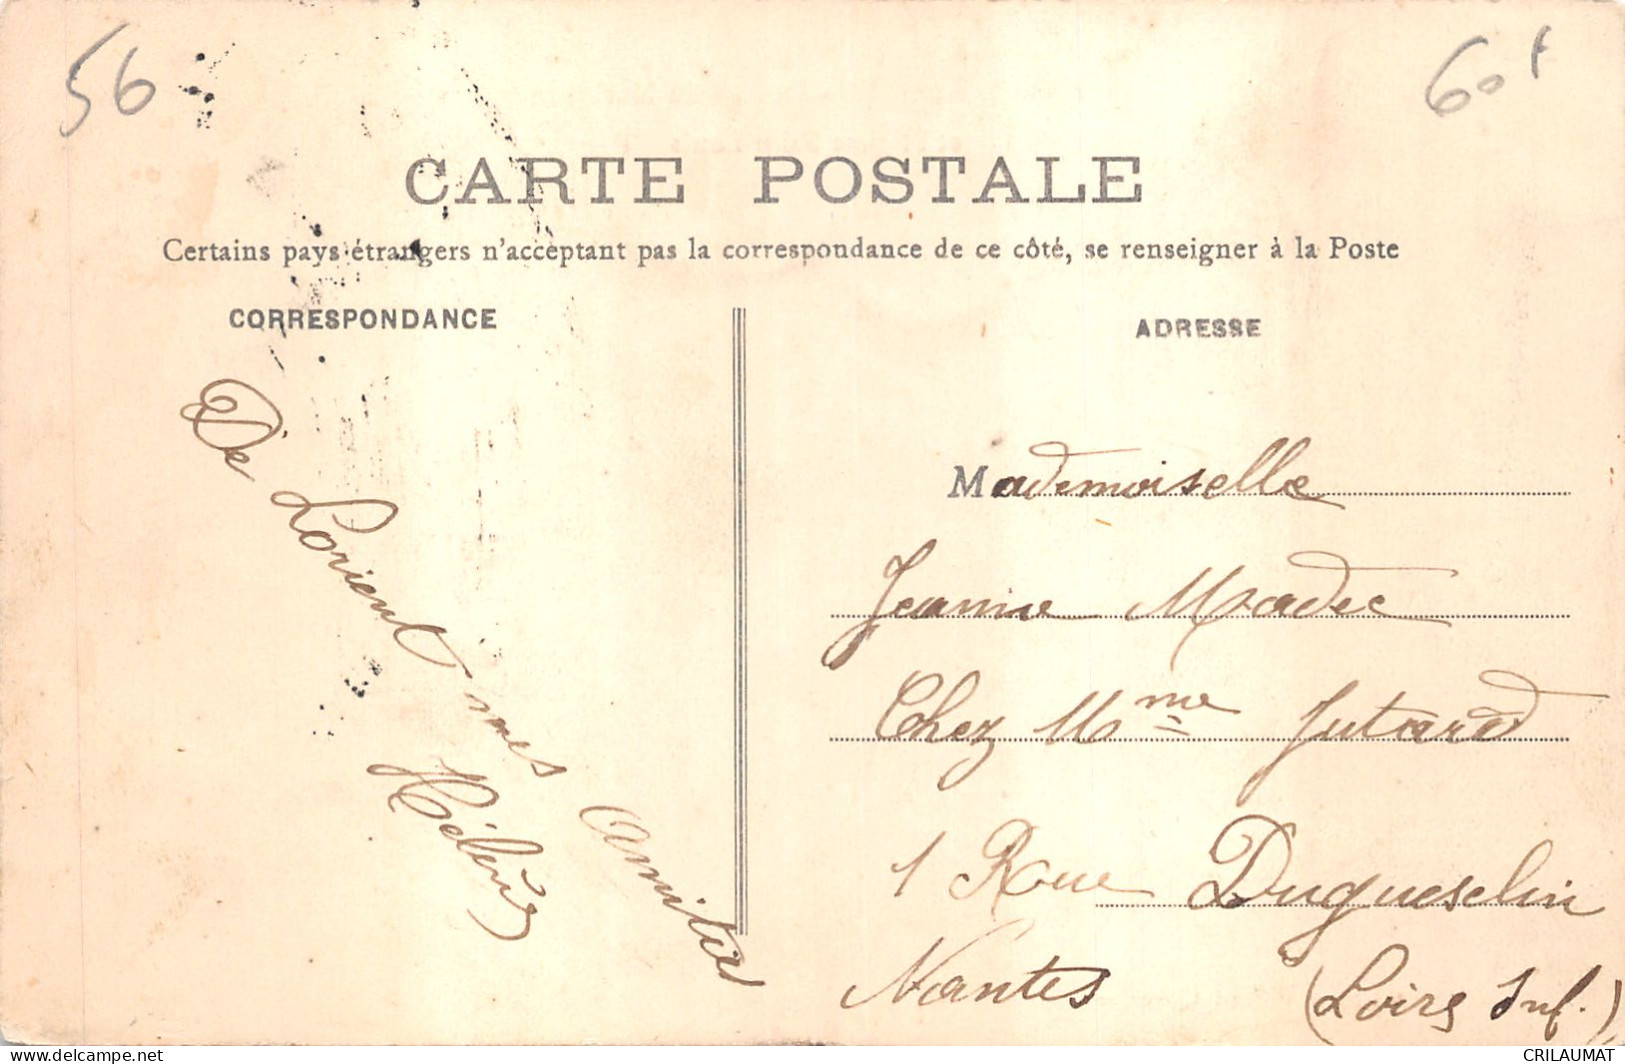 56
60f
CARTE POSTALE
Certains pays étrangers n'acceptant pas la correspondance de ce côté, se renseigner à la Poste
CORRESPONDANCE
ADRESSE
De Lorient mes amitiés
Hélène
Mademoiselle
Jeanne Madec
Chez Mme Jutard
1 Rue Dugueselin
Nantes (Loire Inf.)
CRILAUMAT